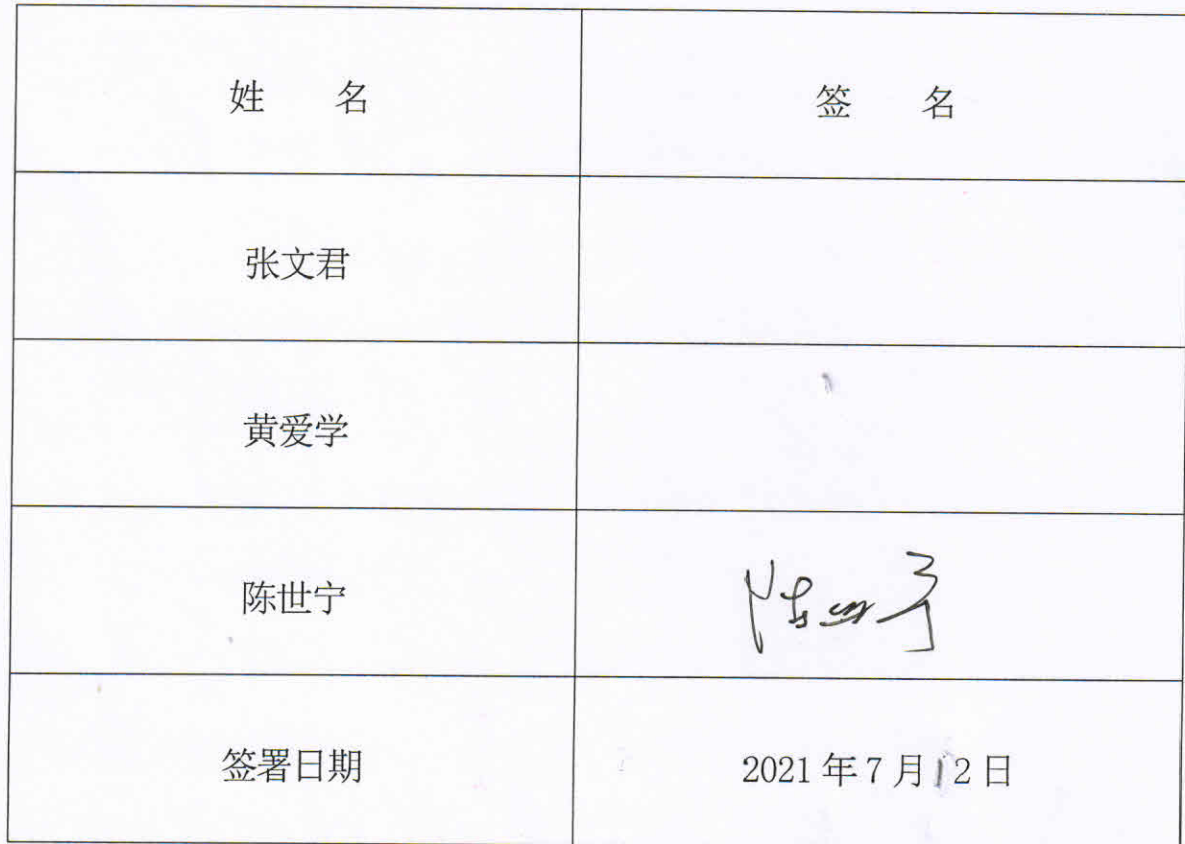 姓 名 签 名
张文君
黄爱学
陈世宁 陈世宁
签署日期 2021年7月12日